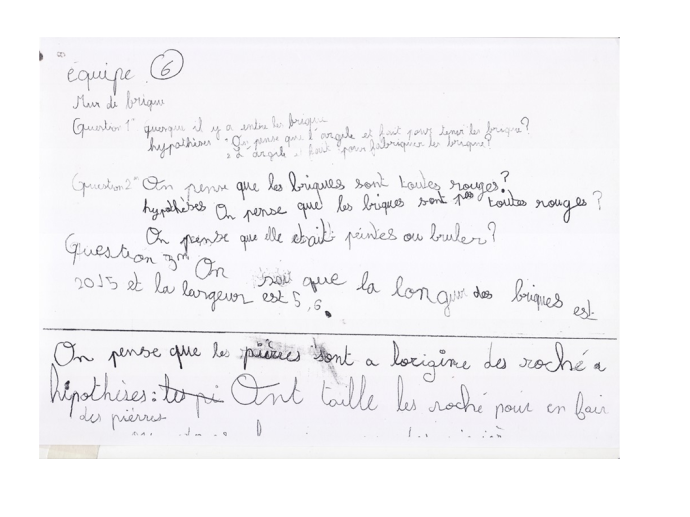 équipe 6
Mur de brique
Question 1" quesque il y a entre les brique
hypothèses "On pense que l'argile et fait pour tenir les brique?
l'argile fait pour fabriquer les brique?
Question 2" On pense que les briques sont toutes rouges?
hypothèses On pense que les briques sont pas toutes rouges?
On pense que elle etait peintes ou bruler?
Question 3m On sai que la longeur des briques est
20,5 et la largeur est 5,6.
On pense que les pièrres sont a lorigine des roché a
hipothèses: les pi Ont taille les roché pour en fair
des pièrres